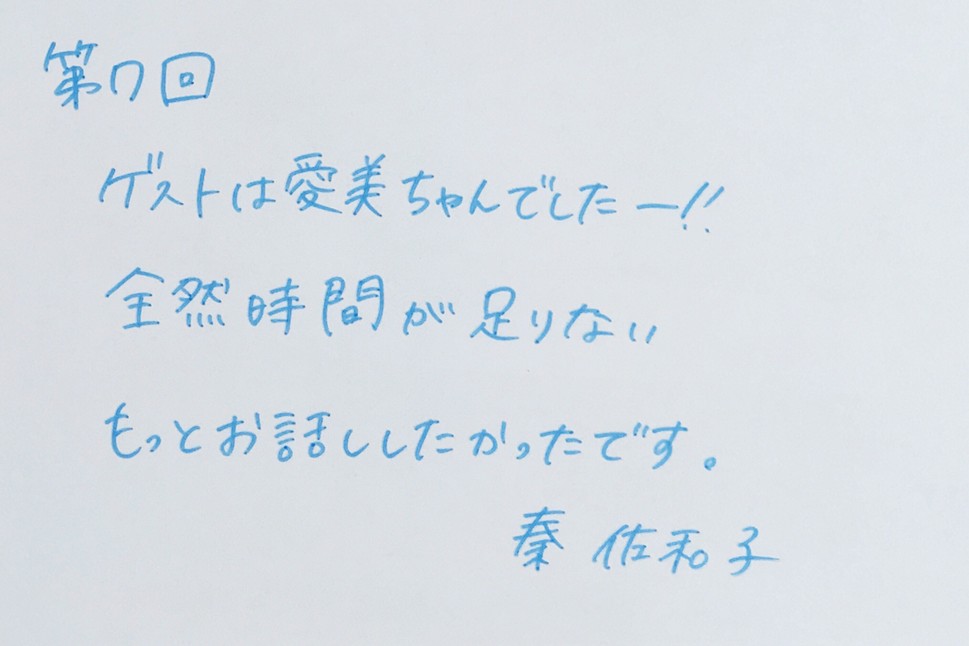 第7回
ゲストは愛美ちゃんでしたー!!
全然時間が足りない
もっとお話ししたかったです。
秦 佐和子